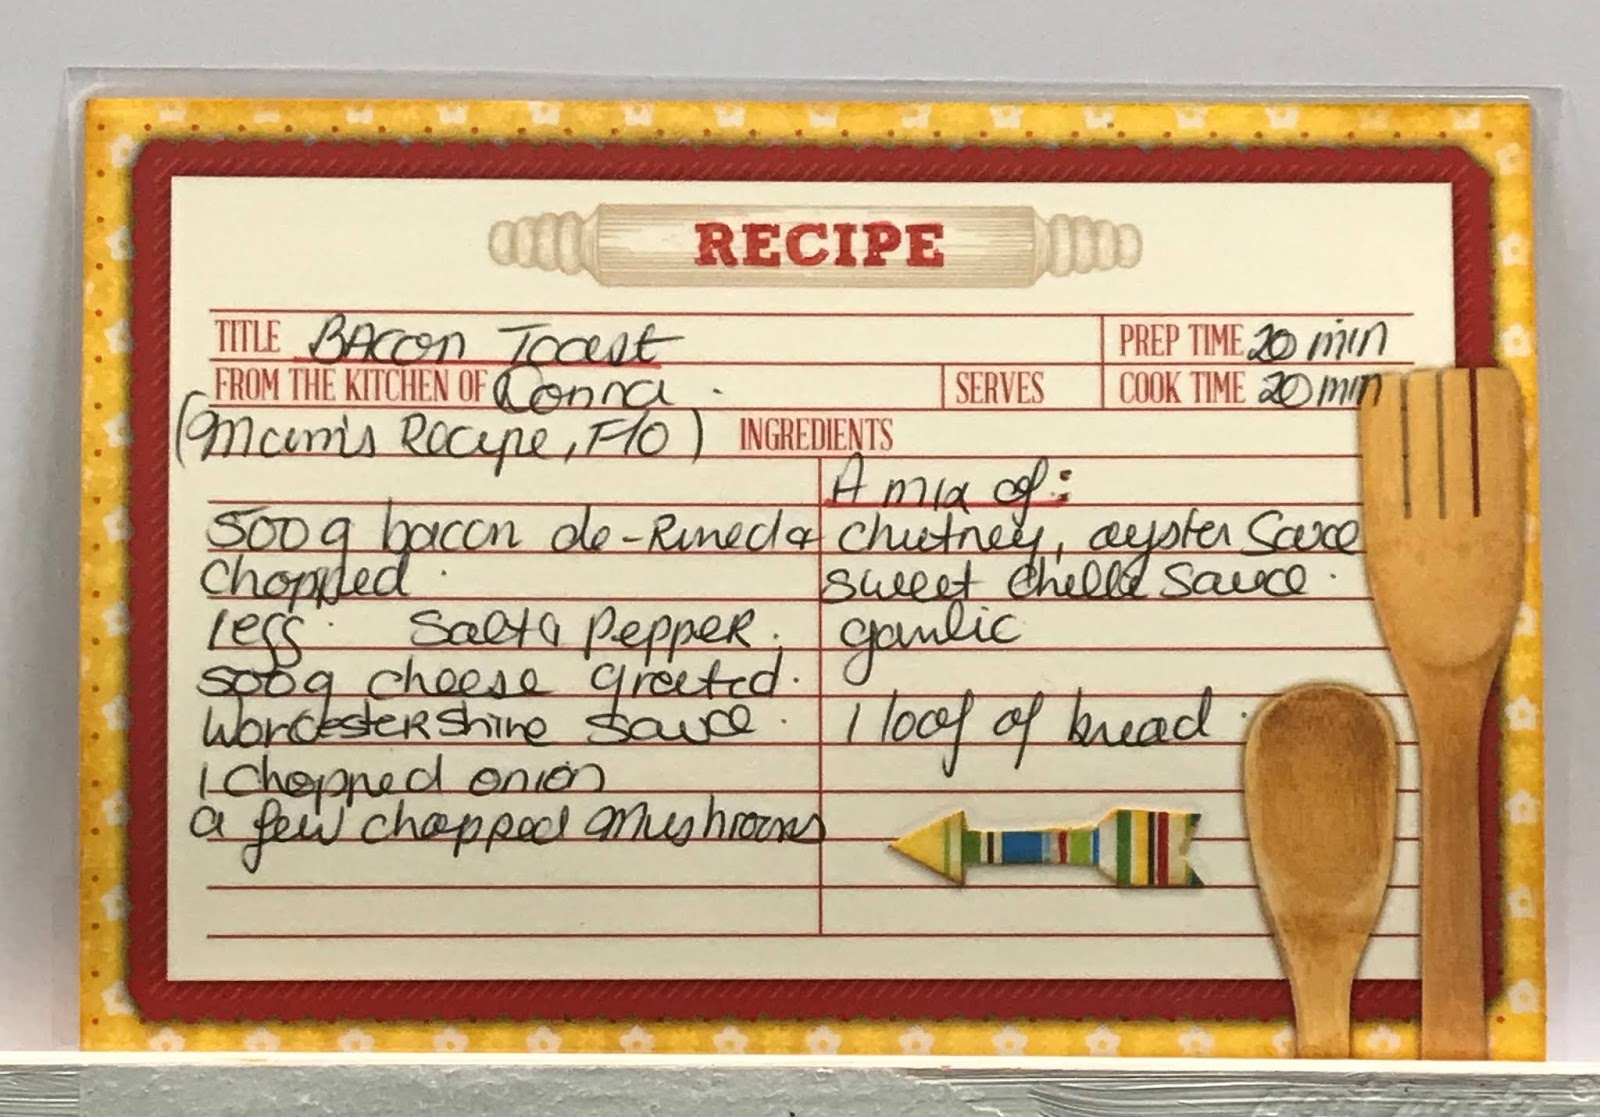 RECIPE
TITLE Bacon Toast
PREP TIME 20 min
FROM THE KITCHEN OF Donna.
SERVES
COOK TIME 20 min
(Mum's Recipe, Flo) INGREDIENTS
500g bacon de-Rined &
chopped.
1 egg. Salt & Pepper.
500g cheese grated.
Worcestershire sauce.
1 chopped onion
a few chopped mushrooms
A mix of:
chutney, oyster sauce
sweet chilli sauce.
garlic
1 loaf of bread.